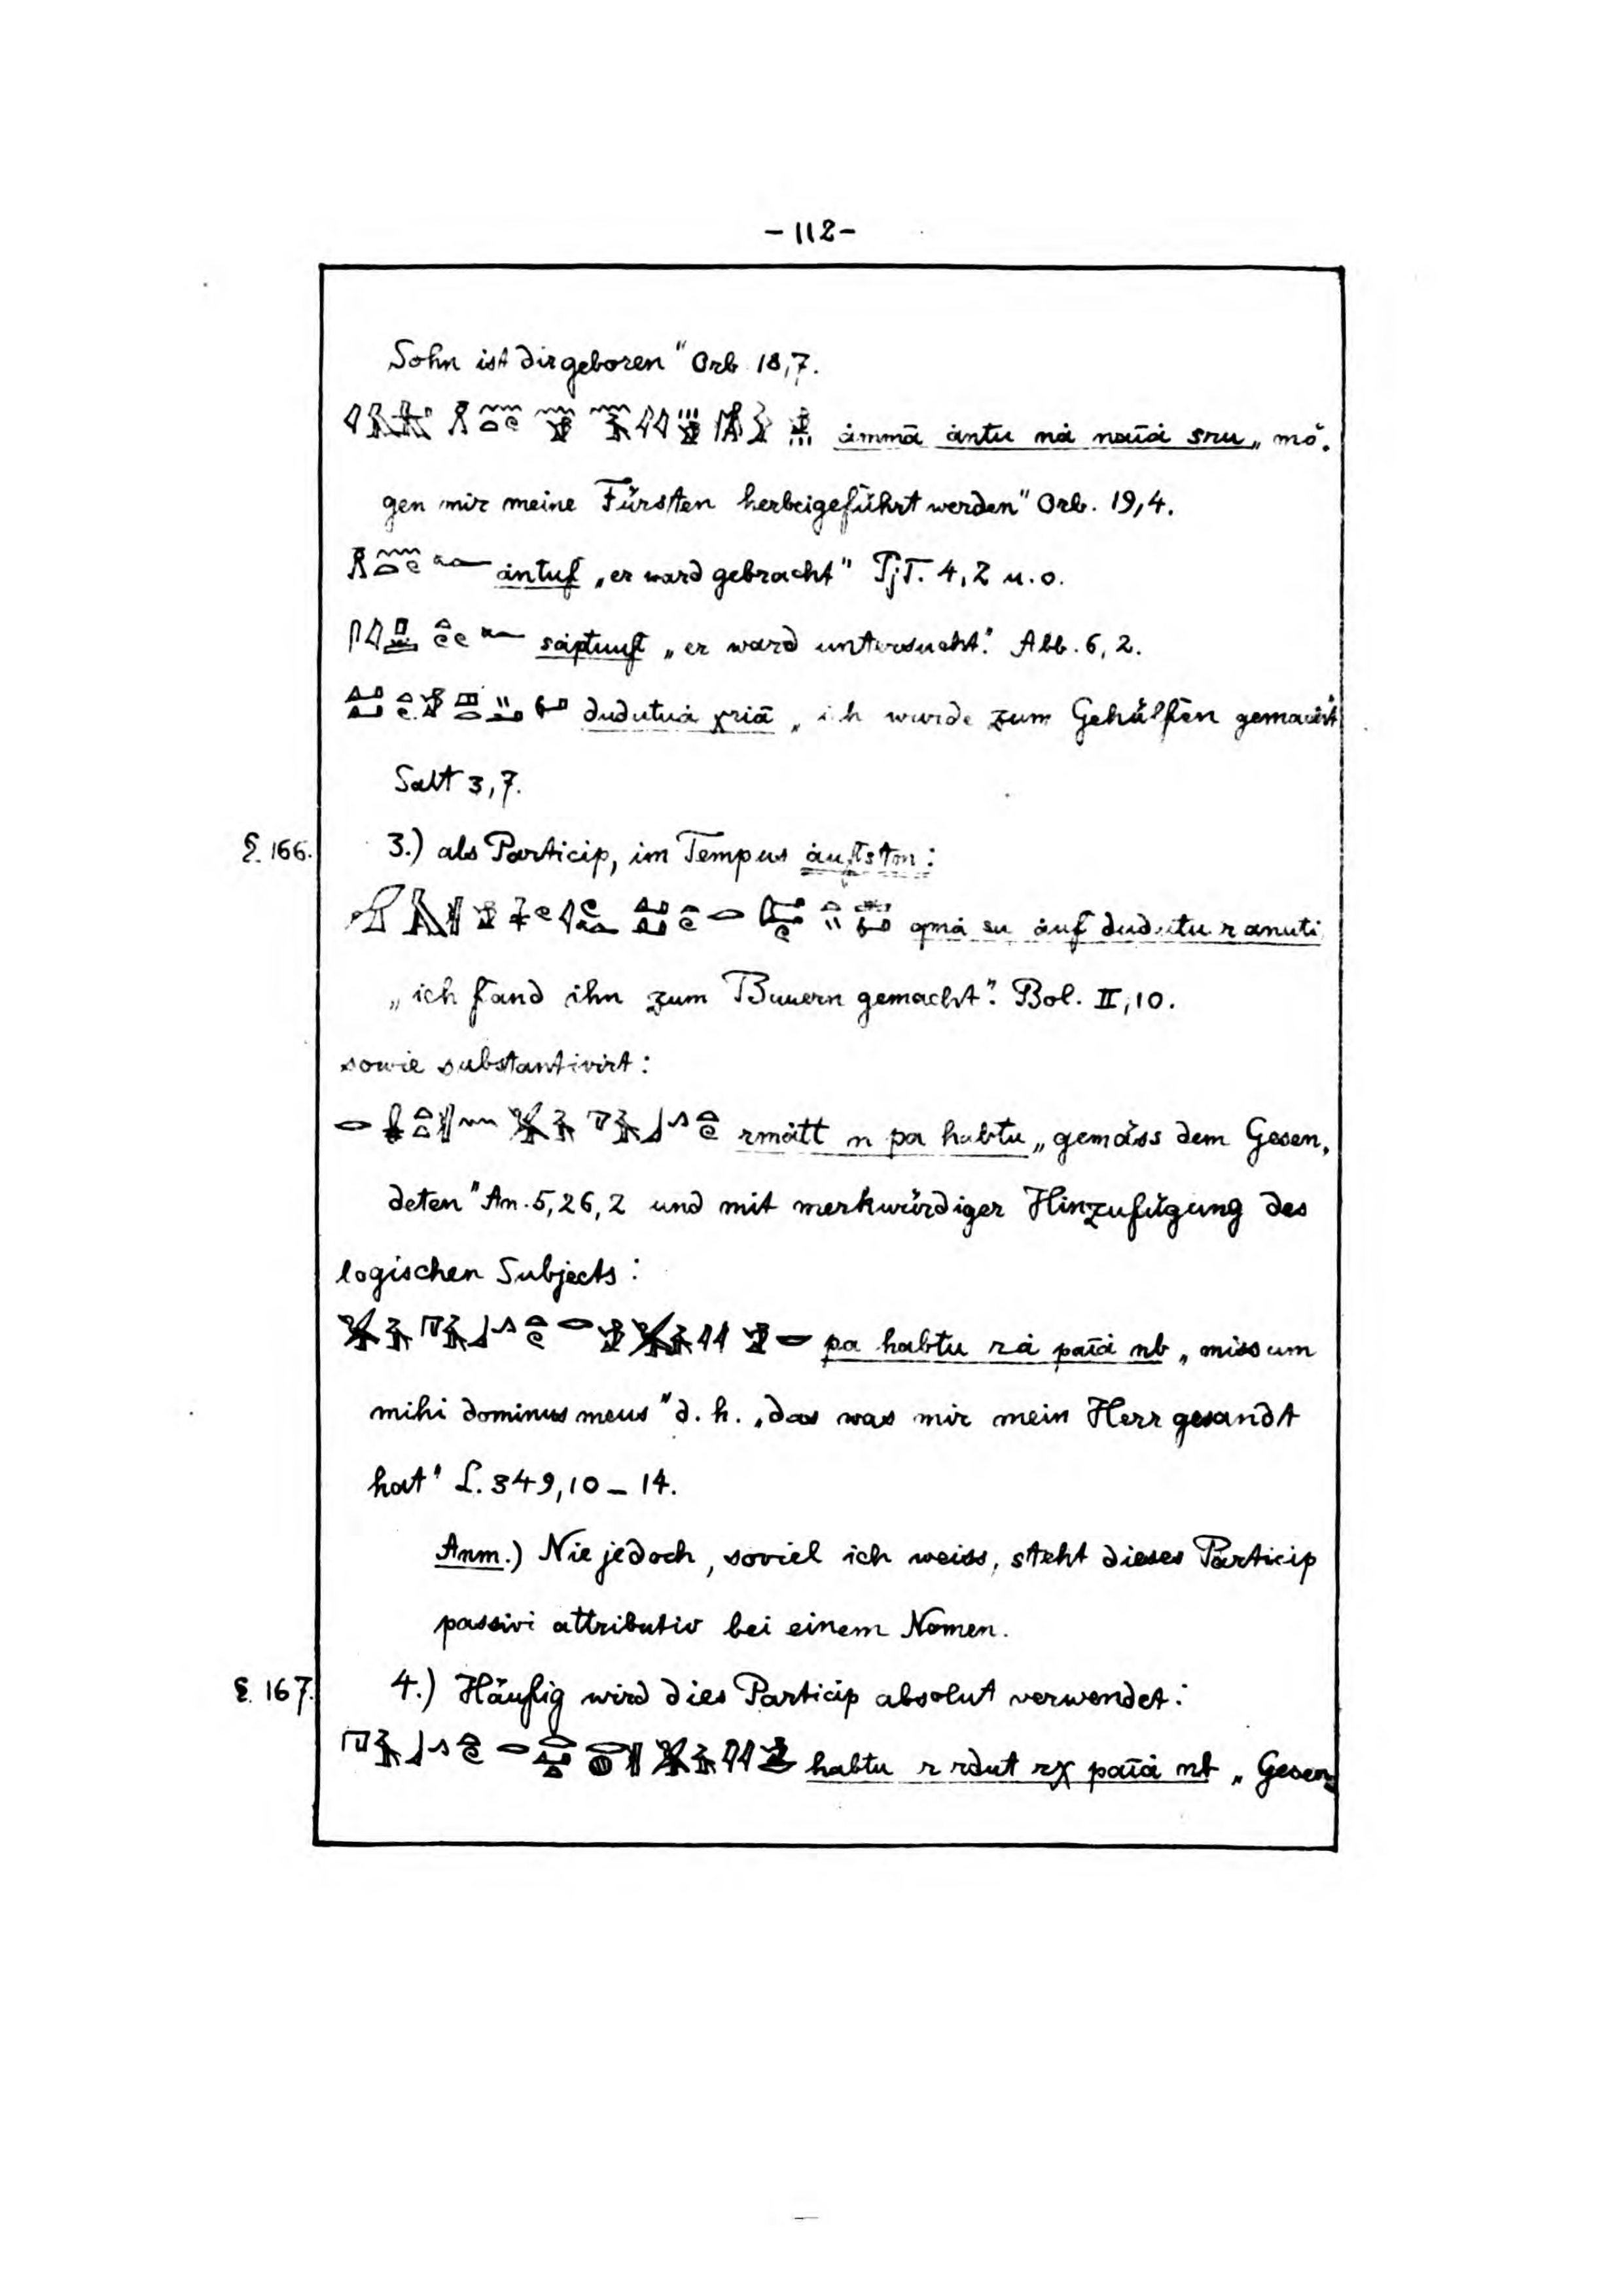 - 112 -
Sohn ist dir geboren" Orb 18,7.
ȧmmā ȧntu nȧ naīȧ sru „mö-
gen mir meine Fürsten herbeigeführt werden" Orb. 19,4.
ȧntuf „er ward gebracht" PjT. 4,2 u. o.
sȧptuuf „er ward untersucht". Abb. 6, 2.
dudutuȧ χriā „ich wurde zum Gehülfen gemacht
Salt 3,7.
§. 166. 3.) als Particip, im Tempus ȧufstm:
qmȧ su ȧuf dudutu r anuti
„ich fand ihn zum Bauern gemacht". Bol. II, 10.
sowie substantivirt:
rmȧtt n pa habtu „gemäss dem Gesen-
deten" An. 5, 26, 2 und mit merkwürdiger Hinzufügung des
logischen Subjects:
pa habtu rȧ paīȧ nb „missum
mihi dominus meus" d. h. „das was mir mein Herr gesandt
hat" L. 349, 10 – 14.
Anm.) Nie jedoch, soviel ich weiss, steht dieses Particip
passivi attributiv bei einem Nomen.
§. 167. 4.) Häufig wird dies Particip absolut verwendet:
habtu r rdut rχ paīȧ nb „Gesen-